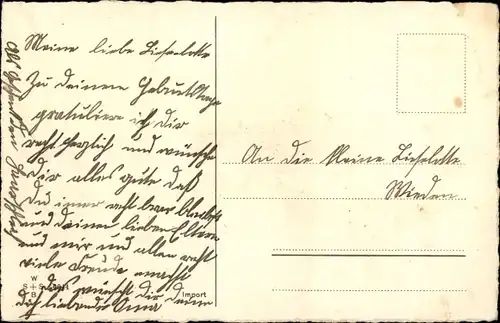 Meine liebe Lieselotte
Zu deinem Geburtstage
gratuliere ich dir
recht herzlich und wünsche
dir alles gute daß
Du immer recht brav bleibst
und deinen lieben Eltern
und mir und allen recht
viele Freude machst
das wünscht dir deine
dich liebende Oma
An die kleine Lieselotte
Wieden
W
S+S
B
Import